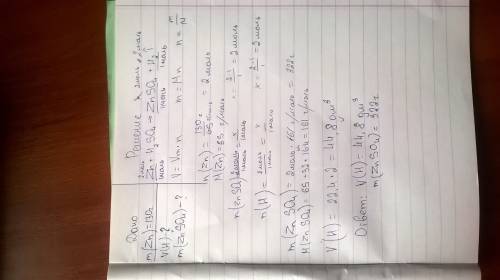 Дано
m(Zn)=130г
V(H)-?
m(ZnSO₄)-?
Решение
2моль x моль x моль
Zn + H₂SO₄ → ZnSO₄ + H₂↑
1моль 1моль 1моль
V = Vm·n m = Mn n = m/M
n(Zn) = 130г / 65г/моль = 2 моль
M(Zn) = 65 г/моль
n(ZnSO₄) 2моль/1моль = x/1моль x = 2·1/1 = 2 моль
n(H) = 2моль/1моль = x/1моль x = 2·1/1 = 2 моль
m(ZnSO₄) = 2моль · 161 г/моль = 322г
M(ZnSO₄) = 65+32+16·4 = 161 г/моль
V(H) = 22.4·2 = 44,8 дм³
Ответ: V(H) = 44,8 дм³
m(ZnSO₄) = 322г